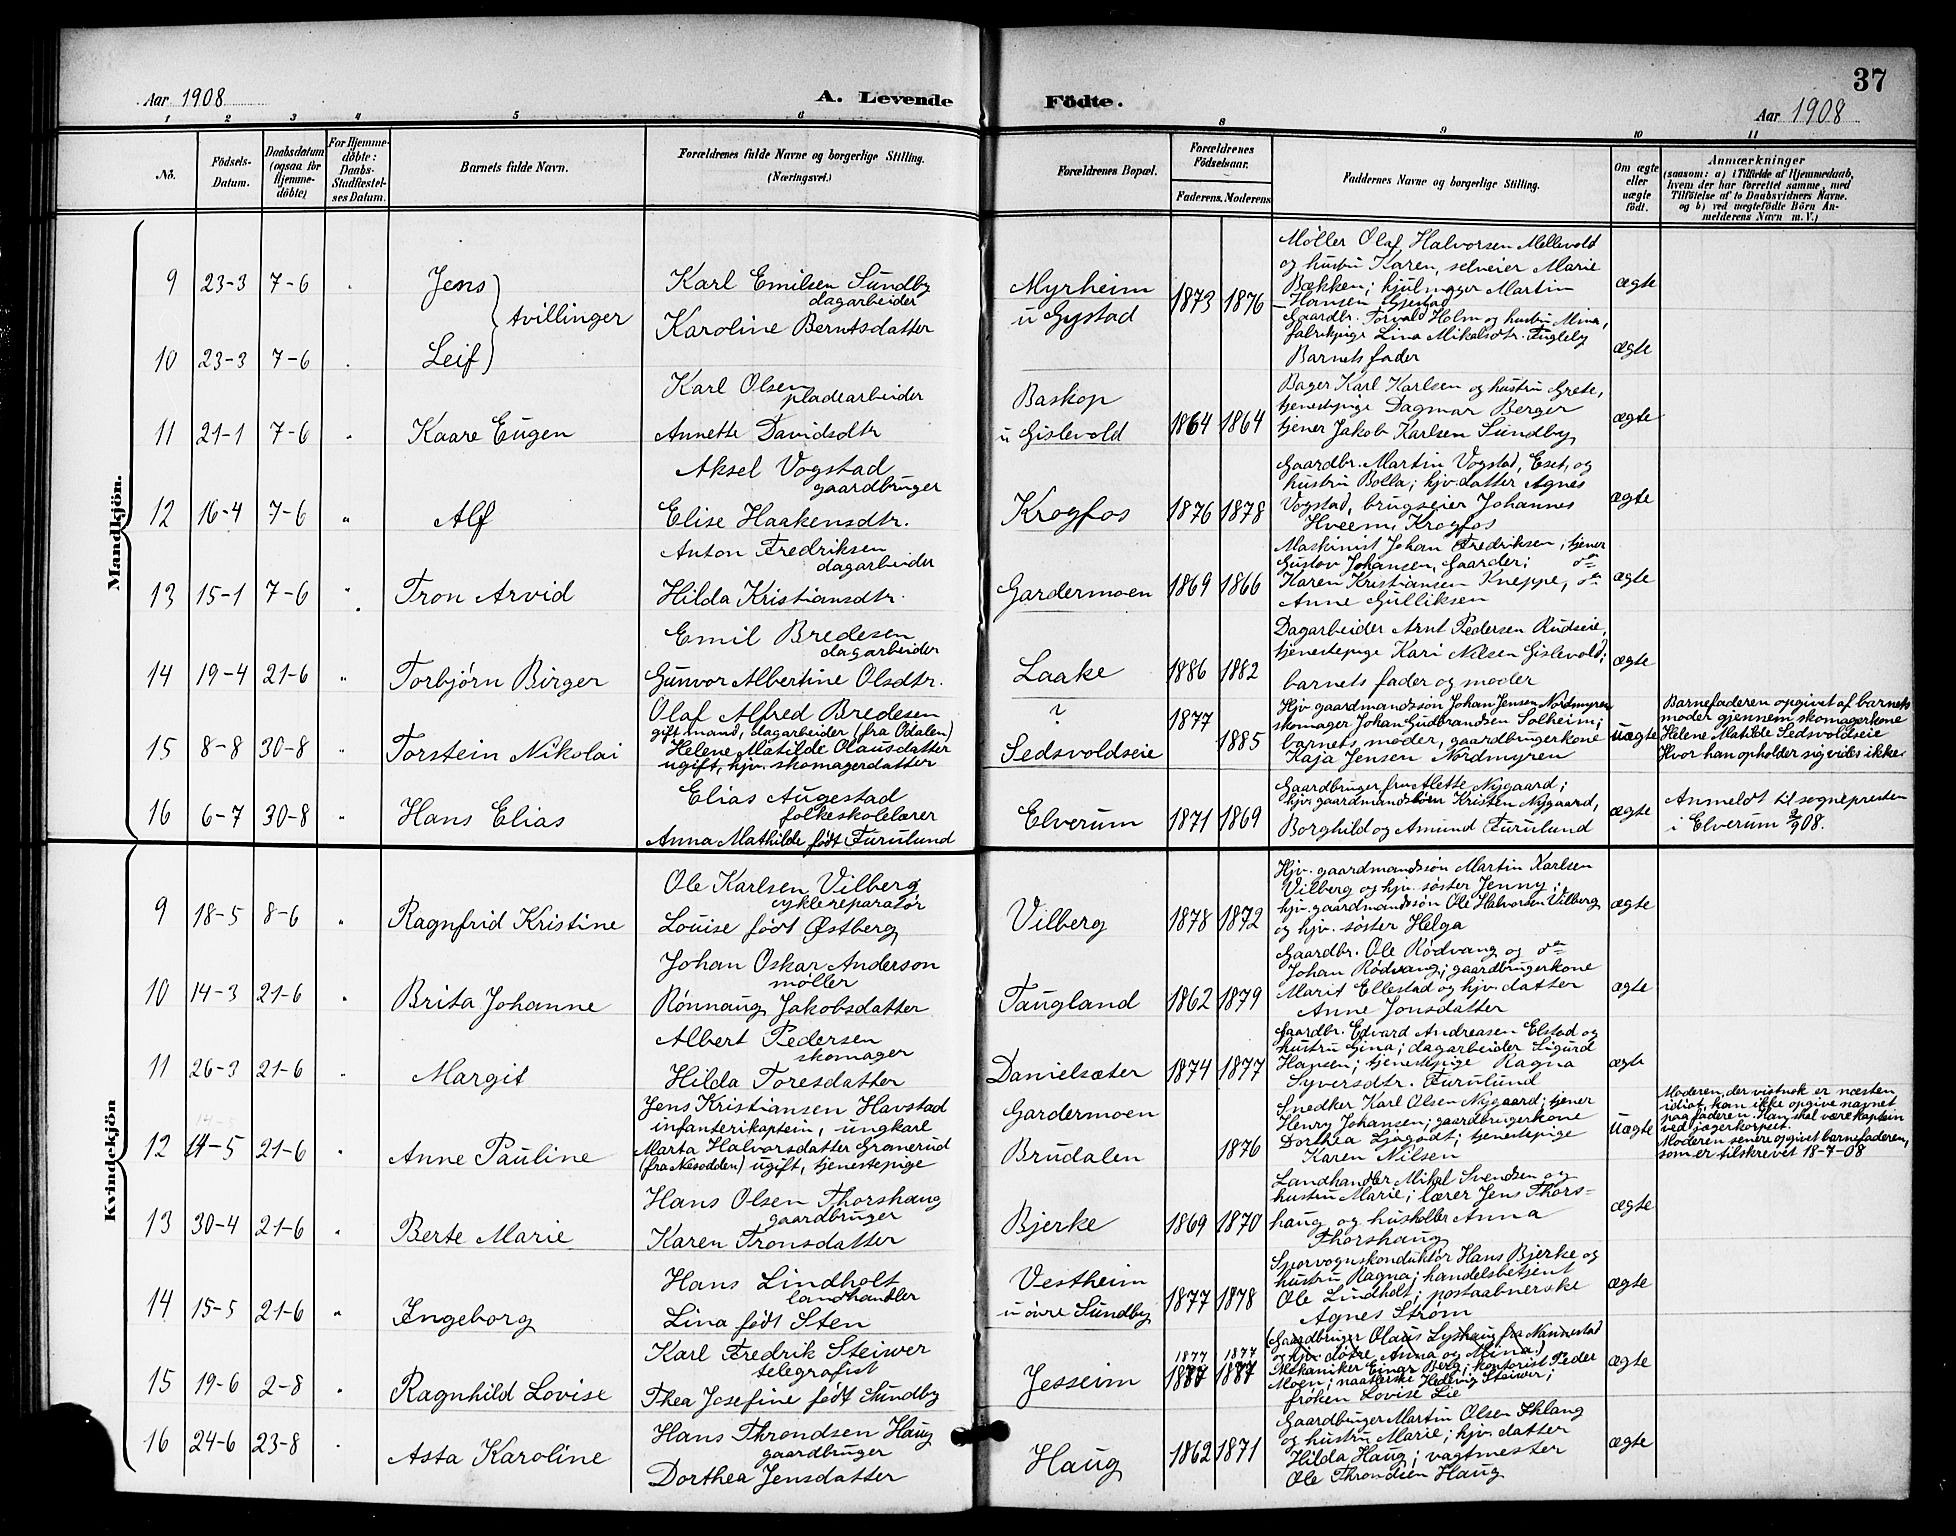 37
Aar 1908 A. Levende Födte. Aar 1908
1 2 3 4 5 6 8 9 10 11
No. Födsels-Datum. Daabsdatum (ogsaa for Hjemmedöbte) For Hjemmedöbte: Daabs-Stadfæstelses Datum. Barnets fulde Navn. Forældrenes fulde Navne og borgerlige Stilling. (Næringsvei.) Forældrenes Bopæl. Forældrenes Födselsaar. Faderens. Moderens Faddernes Navne og borgerlige Stilling. Om ægte eller uægte födt. Anmærkninger (saasom: a) i Tilfælde af Hjemmedaab, hvem der har forrettet samme, med Tilföielse af to Daabsvidners Navne. og b) ved uægtefödte Börn Anmelderens Navn m. V.)
Mandkjön.
9 23-3 7-6 " Jens } tvillinger
Karl Emilsen Sundby
dagarbeider
Karoline Berntsdatter
Myrheim
u Gystad
1873 1876
Møller Olaf Halvorsen Mellevold
og hustru Karen, selveier Marie
Bækken; hjulmager Martin
Hansen Gjestad
ægte
10 23-3 7-6 " Leif
Gaardbr. Torvald Holm og hustru Mina,
fabrikpige Lina Mikalsdtr. Fugleby
Barnets fader
ægte
11 21-1 7-6 " Kaare Eugen
Karl Olsen
pladearbeider
Annette Davidsdtr
Baskop
u Gislevold
1864 1864
Bager Karl Karlsen og hustru Grete,
tjenestepige Dagmar Berger
tjener Jakob Karlsen Sundby
ægte
12 16-4 7-6 " Alf
Aksel Vogstad
gaardbruger
Elise Haakensdtr.
Krogfos
1876 1878
Gaardbr. Martin Vogstad, Eset, og
hustru Bolla; hjv. datter Agnes
Vogstad, brugseier Johannes
Hveem, Krogfos
ægte
13 15-1 7-6 " Tron Arvid
Anton Fredriksen
dagarbeider
Hilda Kristiansdtr.
Gardermoen
1869 1866
Maskinist Johan Fredriksen; tjener
Gustav Johansen, Gaarder;
Karen Kristiansen Kneppe,
Anne Gulliksen
ægte
14 19-4 21-6 " Torbjørn Birger
Emil Bredesen
dagarbeider
Gunvor Albertine Olsdtr.
Laake
1886 1882
Dagarbeider Arnt Pedersen Rudseie,
tjenestepige Kari Nilsen Gislevold;
barnets fader og moder
ægte
15 8-8 30-8 " Torstein Nikolai
Olaf Alfred Bredesen
gift mand, dagarbeider (fra Odalen)
Helene Matilde Olausdatter
ugift, hjv. skomagerdatter
?
Sedsvoldseie
1877 1885
Hjv gaardmandssøn Johan Jensen Nordmyren
skomager Johan Gudbrandsen Solheim;
barnets moder, gaardbrugerkone
Kaja Jensen Nordmyren
uægte
Barnefaderen opgivet af barnets
moder gjennem skomagerkone
Helene Matilde Sedsvoldseie
Hvor han opholder sig vides ikke
16 6-7 30-8 " Hans Elias
Elias Augestad
folkeskolelærer
Anna Mathilde født Furulund
Elverum
1871 1869
Gaardbruger fru Alette Nygaard;
hjv. gaardmandssøn Kristen Nygaard,
Borghild og Amund Furulund
ægte
Anmeldt til sognepresten
i Elverum 08.
Kvindekjön
9 18-5 8-6 " Ragnfrid Kristine
Ole Karlsen Vilberg
cyklereparatør
Louise født Østberg
Vilberg
1878 1872
Hjv. gaardmandssøn Martin Karlsen
Vilberg og hjv. søster Jenny;
hjv. gaardmandssøn Ole Halvorsen Vilberg
og hjv. søster Helga
ægte
10 14-3 21-6 " Brita Johanne
Johan Oskar Anderson
møller
Rønnaug Jakobsdatter
Taugland
1862 1879
Gaardbr. Ole Rødvang og
Johan Rødvang; gaardbrugerkone
Marit Ellestad og hjv. datter
Anne Jonsdatter
ægte
11 26-3 21-6 " Margit
Albert Pedersen
skomager
Hilda Toresdatter
Danielsæter
1874 1877
Gaardbr. Edvard Andreasen Elstad og
hustru Gina; dagarbeider Sigurd
Hansen; tjenestepige Ragna
Syversdtr. Furulund
ægte
14-5
12 14-5 21-6 " Anne Pauline
Jens Kristiansen Havstad
infanterikaptein, ungkarl
Marta Halvorsdatter Granerud
(fra Nesodden) ugift, tjenestepige
Gardermoen
Brudalen
1876
Snedker Karl Olsen Nygaard; tjener
Henry Johansen; gaardbrugerkone
Dorthea Ljøgodt; tjenestepige
Karen Nilsen
Uægte
Moderen, der vistnok er næsten
idiot, kan ikke opgive navnet
paa faderen. Han skal være kaptein
ved jægerkorpset.
Moderen senere opgivet barnefaderen,
som er tilskrevet 18-7-08
13 30-4 21-6 " Berte Marie
Hans Olsen Thorshaug
gaardbruger
Karen Tronsdatter
Bjerke
1869 1870
Landhandler Mikal Svendsen og
hustru Marie; lærer Jens Thors=
haug og husholder Anna
Thorshaug
ægte
14 15-5 21-6 " Ingeborg
Hans Lindholt
landhandler
Lina født Sten
Vestheim
u øvre Sundby
1877 1878
Sporvognskonduktør Hans Bjerke og
hustru Ragna; handelsbetjent
Ole Lindholt; postaabnerske
Agnes Strøm
ægte
15 19-6 2-8 " Ragnhild Lovise
Karl Fredrik Steiwer
telegrafist
Thea Josefine født Sundby
Jesseim
1877 1877
1887 1887
(Gaardbruger Olaus Lyshaug fra Nannestad
og hjv. døtre Anna og Mina.)
Mekaniker Einar Berg; kontorist Peder
Moen; naaterske Hedevig Steiwer;
frøken Lovise Lie
ægte
16 24-6 23-8 " Asta Karoline
Hans Throndsen Haug
gaardbruger
Dorthea Jensdatter
Haug
1862 1871
Gaardbruger Martin Olsen Ihlang
og hustru Marie; hjv. datter
Hilda Haug; vagtmester
Ole Throndsen Haug
ægte